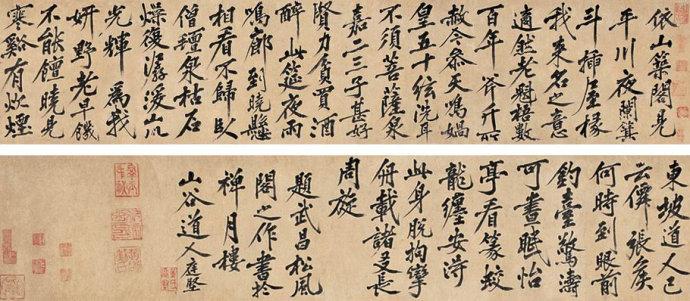 依山築閣見
平川夜闌箕
斗插屋椽
我來名之意
適然老魁梧數
百年斧斤所
赦今叅天鳴媧
皇五十絃洗耳
不須菩薩泉
嘉二三子甚好
賢力貧買酒
醉此筵夜雨
鳴廊到曉懸
相看不歸臥
僧氈泉枯石
燥復潺湲山川
光輝為我
妍野老早饑
不能饘曉見
寒谿有炊煙
東坡道人已
僊張侯
何時到眼前
釣臺驚濤
可晝眠怡
亭看篆蛟
龍纏安得
此身脫拘攣
載諸友長
周旋
題武昌松風
閣之作書於
禪月樓
山谷道人庭堅